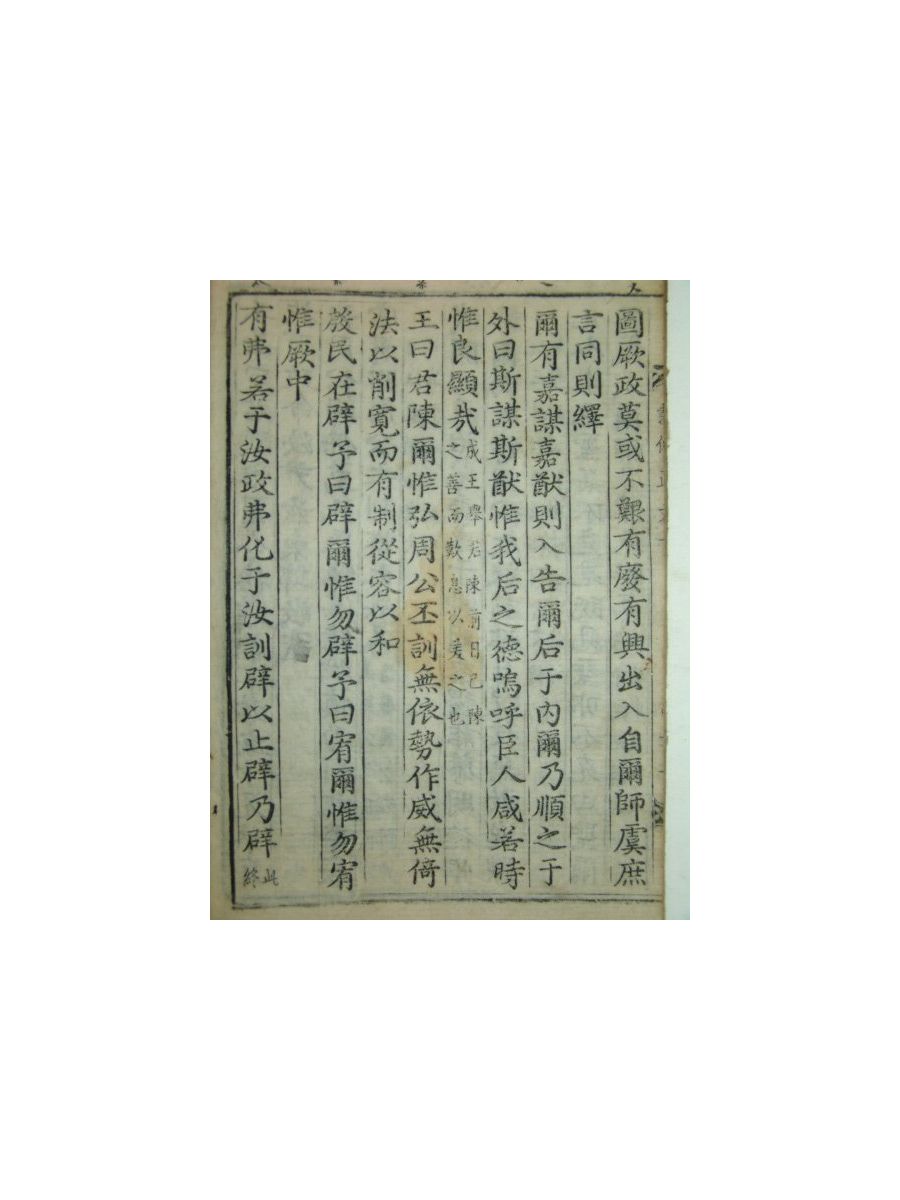 圖厥政莫或不艱有廢有興出入自爾師虞庶
言同則繹
爾有嘉謀嘉猷則入告爾后于內爾乃順之于
外曰斯謀斯猷惟我后之德嗚呼臣人咸若時
惟良顯哉成王舉君陳前日已陳
之善而歎息以美之也
王曰君陳爾惟弘周公丕訓無依勢作威無倚
法以削寬而有制從容以和
殷民在辟予曰辟爾惟勿辟予曰宥爾惟勿宥
惟厥中
有弗若于汝政弗化于汝訓辟以止辟乃辟此
終